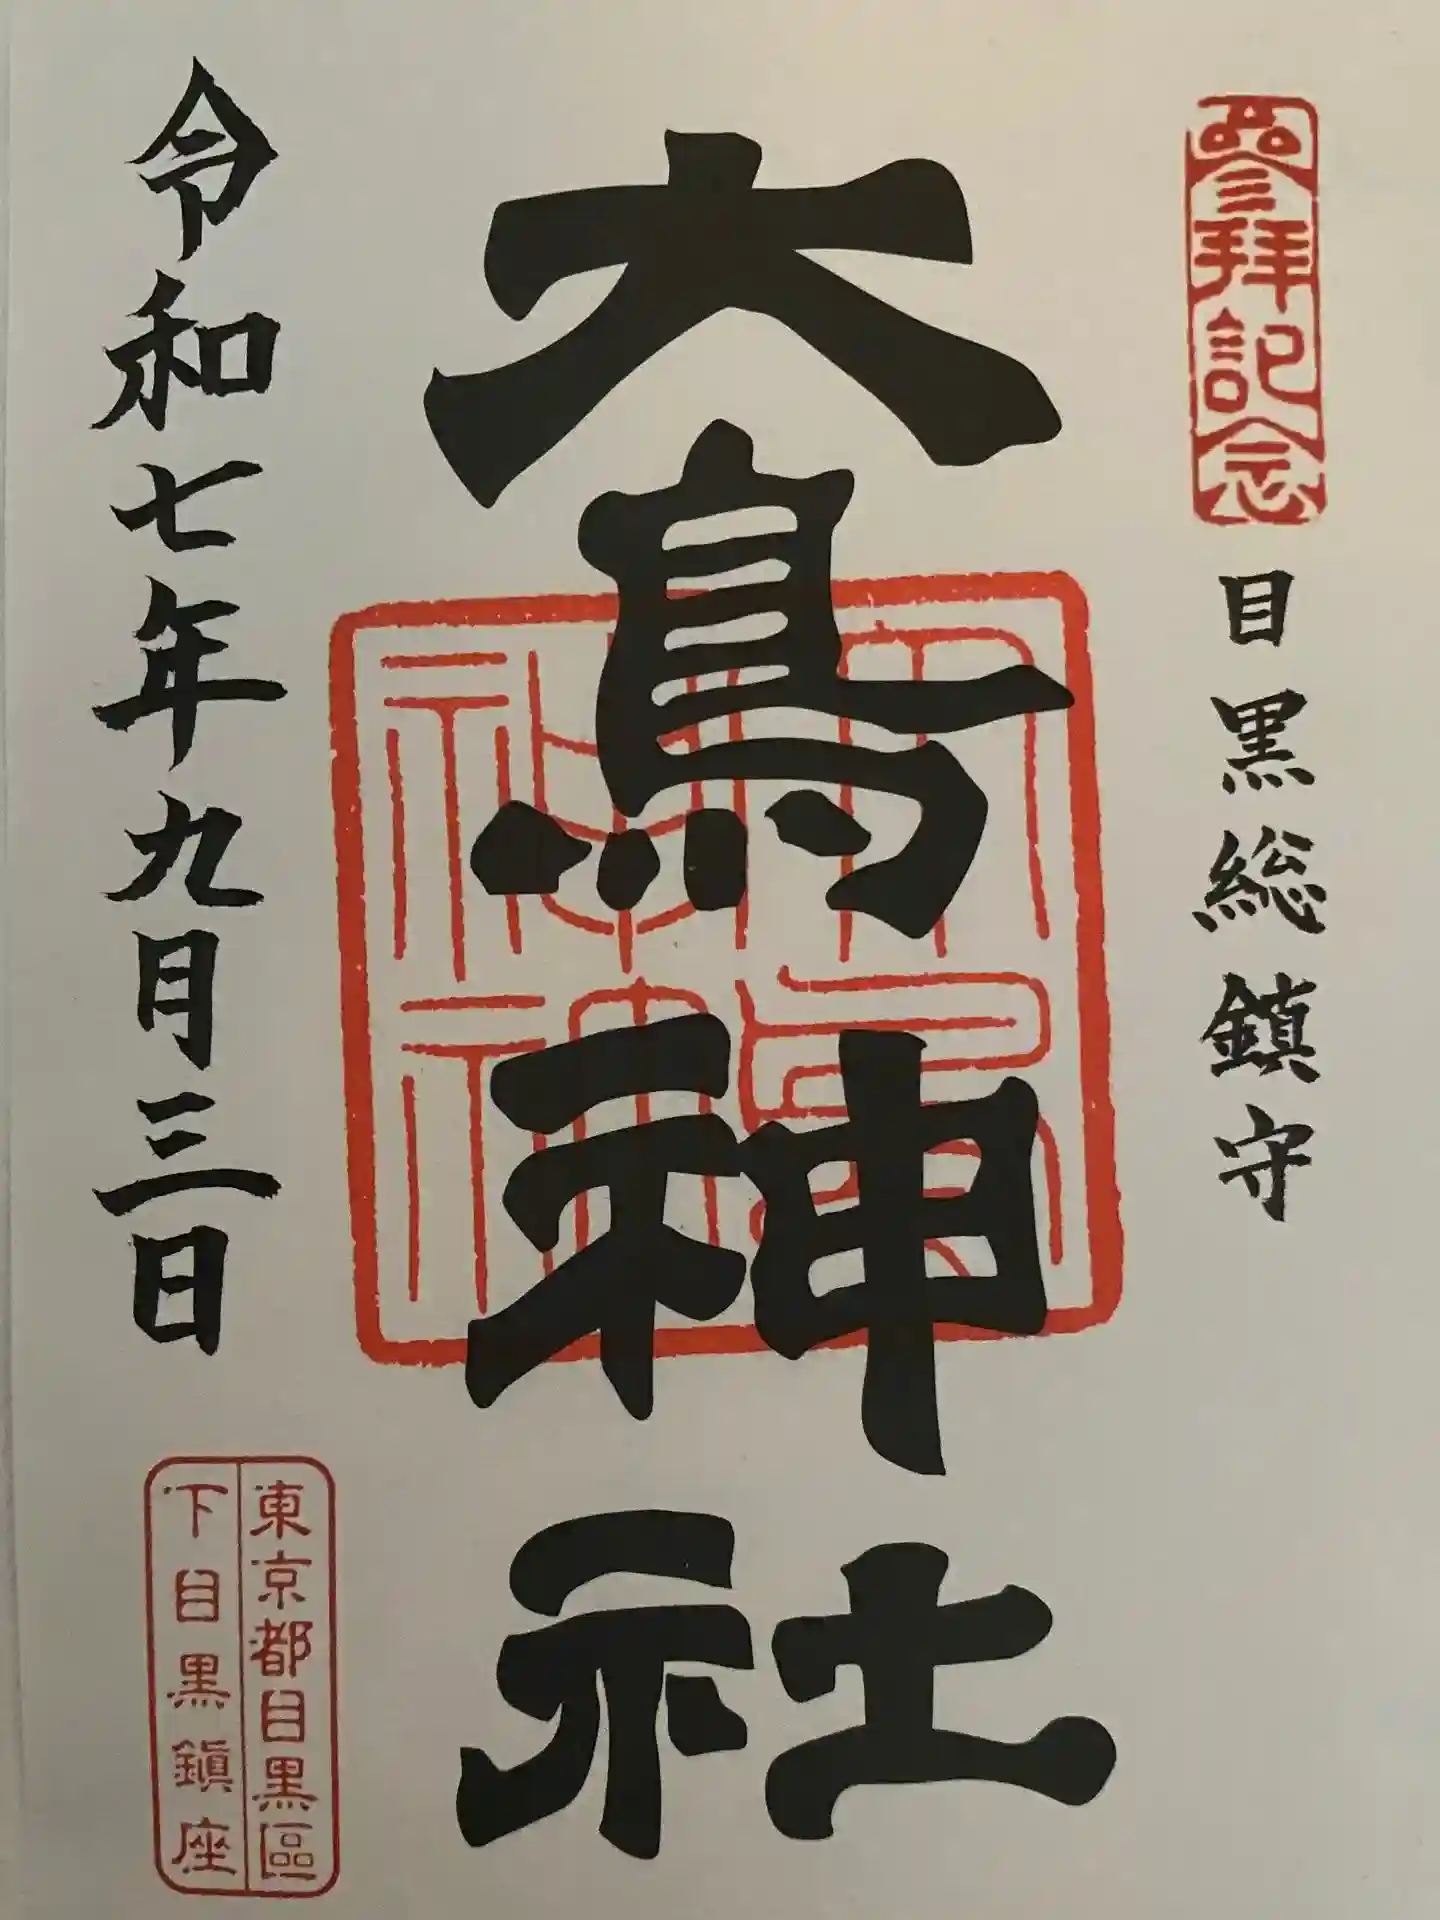 參拜記念
目黒総鎮守
大鳥神社
令和七年九月三日
東京都目黒區
下目黒鎭座